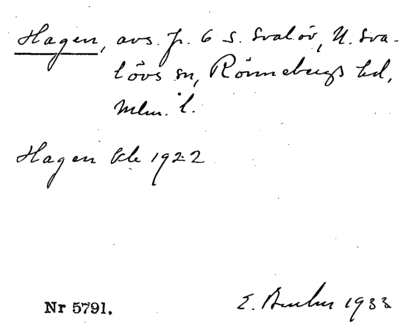 Hagen, avs. p. 6 s. Svalöv, N. Sva-
lövs sn, Rönnebergs hd,
Mlm. l.
Hagen kb 1922
Nr 5791.
E. 1933